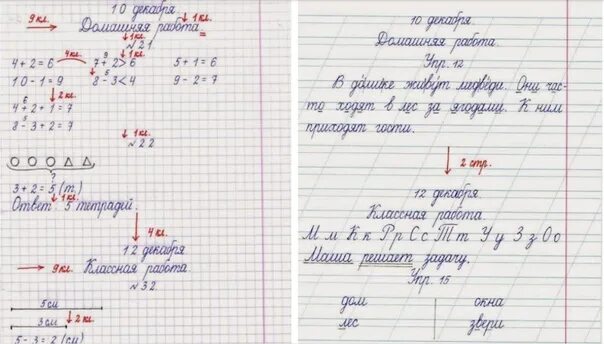 10 декабря.
1 кл.
9 кл. Домашняя работа.
1 кл.
№ 21
4 кл. 9 1 кл.
4 + 2 = 6 7 + 2 > 6 5 + 1 = 6
5
10 - 1 = 9 8 - 3 < 4 9 - 2 = 7
2 кл.
6
4 + 2 + 1 = 7
5
8 - 3 + 2 = 7
1 кл.
№ 22
?
3 + 2 = 5 (т.)
1 кл.
Ответ: 5 тетрадей.
4 кл.
12 декабря.
9 кл. Классная работа
№ 32
5 см
3 см 2 кл.
5 - 3 = 2 (см)
10 декабря.
Домашняя работа.
Упр. 12
В домике живут медведи. Они час-
то ходят в лес за ягодами. К ним
приходят гости.
2 стр.
12 декабря.
Классная работа.
М м К к Р р С с Т т У у З з О о
Маша решает задачу.
Упр. 15
дом окна
лес звери